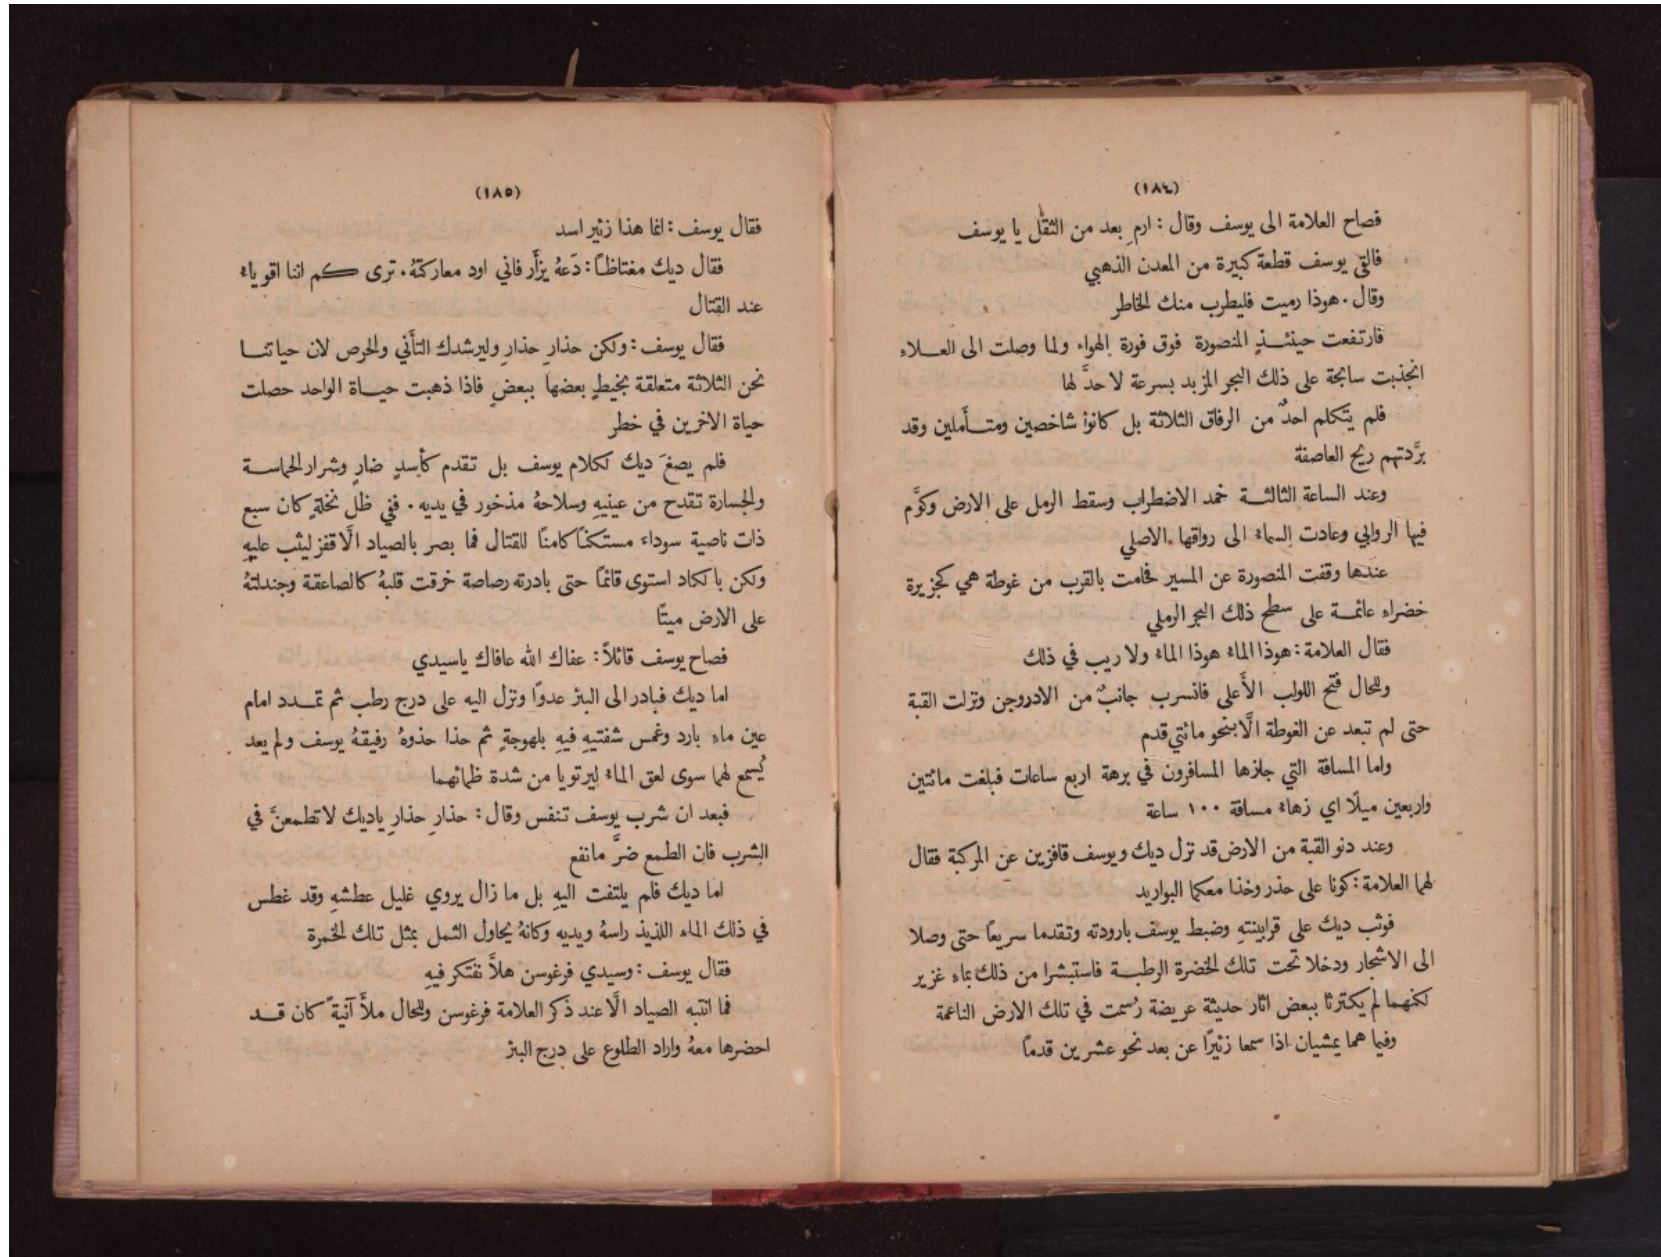 (١٨٤)
فصاح العلامة الى يوسف وقال : ارمِ بعد من الثقل يا يوسف
فالقى يوسف قطعة كبيرة من المعدن الذهبي
وقال . هوذا رميت فليطرب منك الخاطر
فارتفعت حينئذٍ المنصورة فوق فورة الهواء ولما وصلت الى العلاء
انجذبت سابحة على ذلك البحر المزبد بسرعة لا حدَّ لها
فلم يتكلم احدٌ من الرفاق الثلاثة بل كانوا شاخصين ومتأَملين وقد
برَّدتهم ريح العاصفة
وعند الساعة الثالثة خمد الاضطراب وسقط الرمل على الارض وكوَّم
فيها الروابي وعادت السماءُ الى رواقها الاصلي
عندها وقفت المنصورة عن المسير فحامت بالقرب من غوطة هي كجزيرة
خضراء عائمة على سطح ذلك البحر الرملي
فقال العلامة : هوذا الماءُ هوذا الماءُ ولا ريب في ذلك
وللحال فتح اللولب الأَعلى فانسرب جانبٌ من الادروجن ونزلت القبة
حتى لم تبعد عن الغوطة الَّا بنحو مائتي قدم
واما المسافة التي جازها المسافرون في برهة اربع ساعات فبلغت مائتين
واربعين ميلًا اي زهاءَ مسافة ١٠٠ ساعة
وعند دنو القبة من الارض قد نزل ديك ويوسف قافزين عن المركبة فقال
لهما العلامة : كونا على حذر وخذا معكما البواريد
فوثب ديك على قرابينتهِ وضبط يوسف بارودته وتقدما سريعًا حتى وصلا
الى الاشجار ودخلا تحت تلك الخضرة الرطبة فاستبشرا من ذلك بماءٍ غزير
لكنهما لم يكترثا ببعض اثار حديثة عريضة رُسمت في تلك الارض الناعمة
وفيما هما يمشيان اذا سمعا زئيرًا عن بعد نحو عشرين قدمًا
(١٨٥)
فقال يوسف : انما هذا زئير اسد
فقال ديك مغتاظًا : دَعهُ يزأَر فاني اود معاركتهُ . ترى كم اننا اقوياءُ
عند القتال
فقال يوسف : ولكن حذارِ حذارِ وليرشدك التأَني والحرص لان حياتنا
نحن الثلاثة متعلقة بخيطٍ بعضها ببعضٍ فاذا ذهبت حياة الواحد حصلت
حياة الاخرين في خطر
فلم يصغَ ديك لكلام يوسف بل تقدم كأَسدٍ ضارٍ وشرار الحماسة
والجسارة تقدح من عينيهِ وسلاحهُ مذخور في يديه . ففي ظل نخلةٍ كان سبع
ذات ناصية سوداءَ مستكنًّا كامنًا للقتال فما بصر بالصياد الَّا قفز ليثب عليهِ
ولكن بالكاد استوى قائمًا حتى بادرته رصاصة خرقت قلبهُ كالصاعقة وجندلتهُ
على الارض ميتًا
فصاح يوسف قائلاً : عفاك الله عافاك ياسيدي
اما ديك فبادر الى البئر عدوًا ونزل اليه على درج رطب ثم تمدد امام
عين ماءٍ بارد وغمس شفتيهِ فيهِ بلهوجةٍ ثم حذا حذوهُ رفيقهُ يوسف ولم يعد
يُسمع لهما سوى لعق الماءِ ليرتويا من شدة ظمائهما
فبعد ان شرب يوسف تنفس وقال : حذارِ حذارِ ياديك لا تطمعنَّ في
الشرب فان الطمع ضرَّ مانفع
اما ديك فلم يلتفت اليهِ بل ما زال يروي غليل عطشهِ وقد غطس
في ذلك الماءِ اللذيذ راسهُ ويديه وكانهُ يحاول الثمل بمثل تلك الخمرة
فقال يوسف : وسيدي فرغوسن هلَّا تفتكر فيهِ
فما انتبه الصياد الَّا عند ذكر العلامة فرغوسن وللحال ملأَ آنيةً كان قد
احضرها معهُ واراد الطلوع على درج البئر